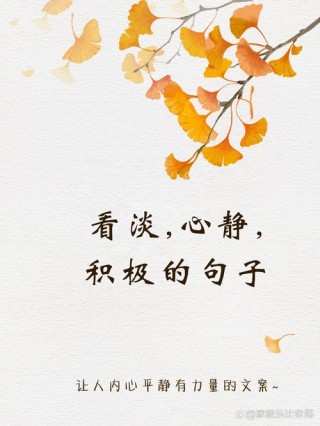 看淡,心静,
积极的句子
让人内心平静有力量的文案~